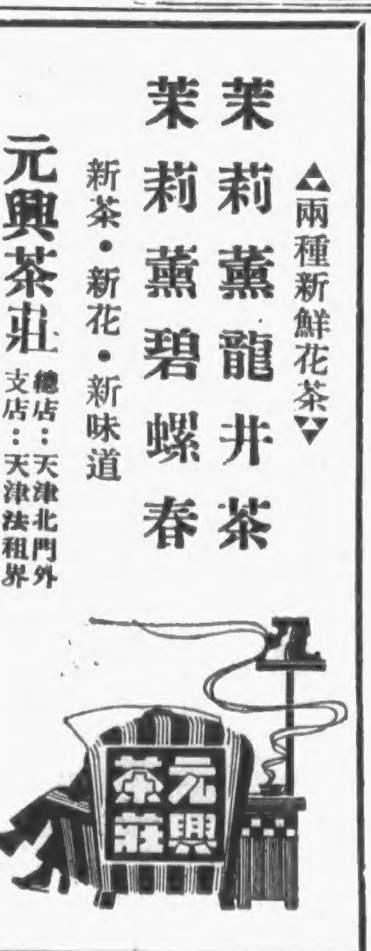 兩種新鮮花茶
茉莉薰龍井茶
茉莉薰碧螺春
新茶•新花•新味道
元興茶莊
總店：天津北門外
支店：天津法租界
元興
茶莊